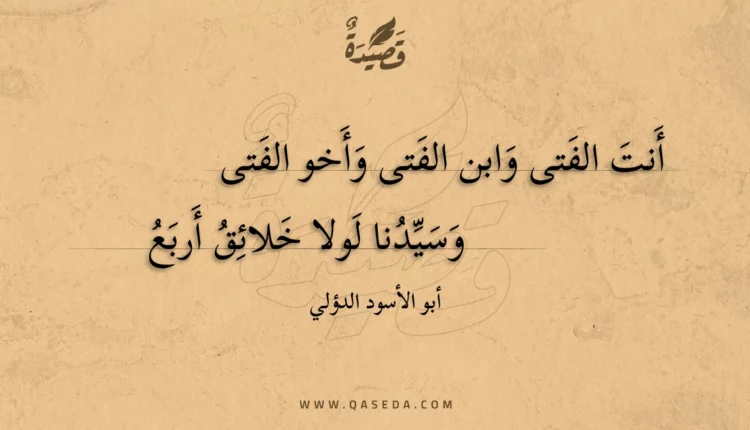 قَصِيدَةٌ
أَنتَ الفَتى وَابن الفَتى وَأَخو الفَتى
وَسَيِّدُنا لَولا خَلائِقُ أَربَعُ
أبو الأسود الدؤلي
WWW.QASEDA.COM